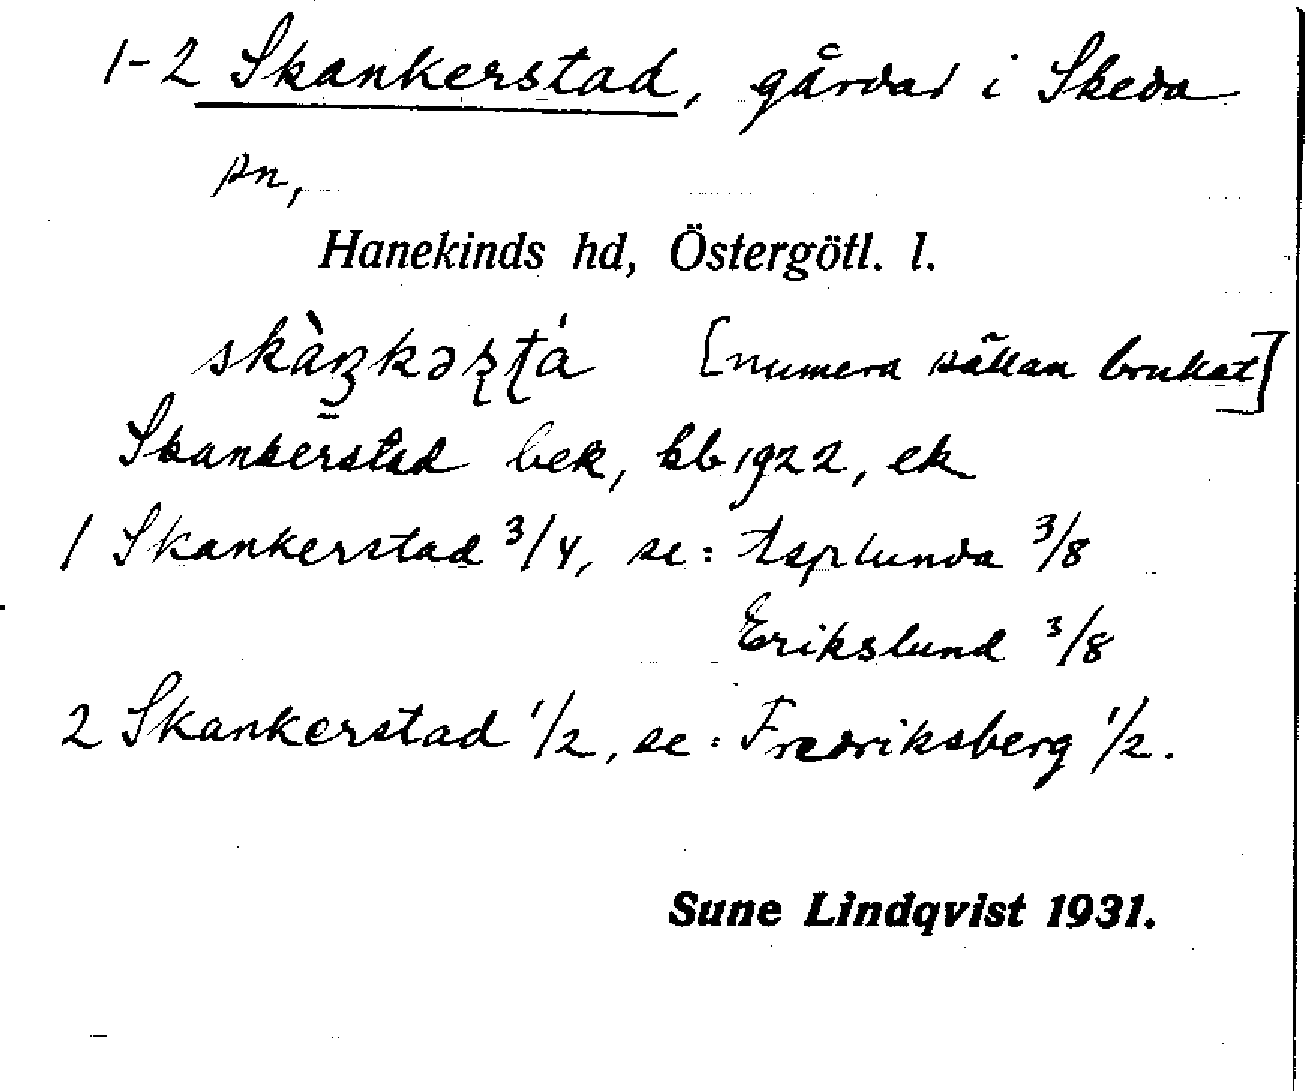 1-2 Skankerstad, gårdar i Skeda
sn,
Hanekinds hd, Östergötl. l.
skàŋkəʂʈá [numera sällan brukat]
Skankerstad bek, kb 1922, ek
1 Skankerstad 3/4, se: Asplunda 3/8
Erikslund 3/8
2 Skankerstad 1/2, se: Fredriksberg 1/2.
Sune Lindqvist 1931.